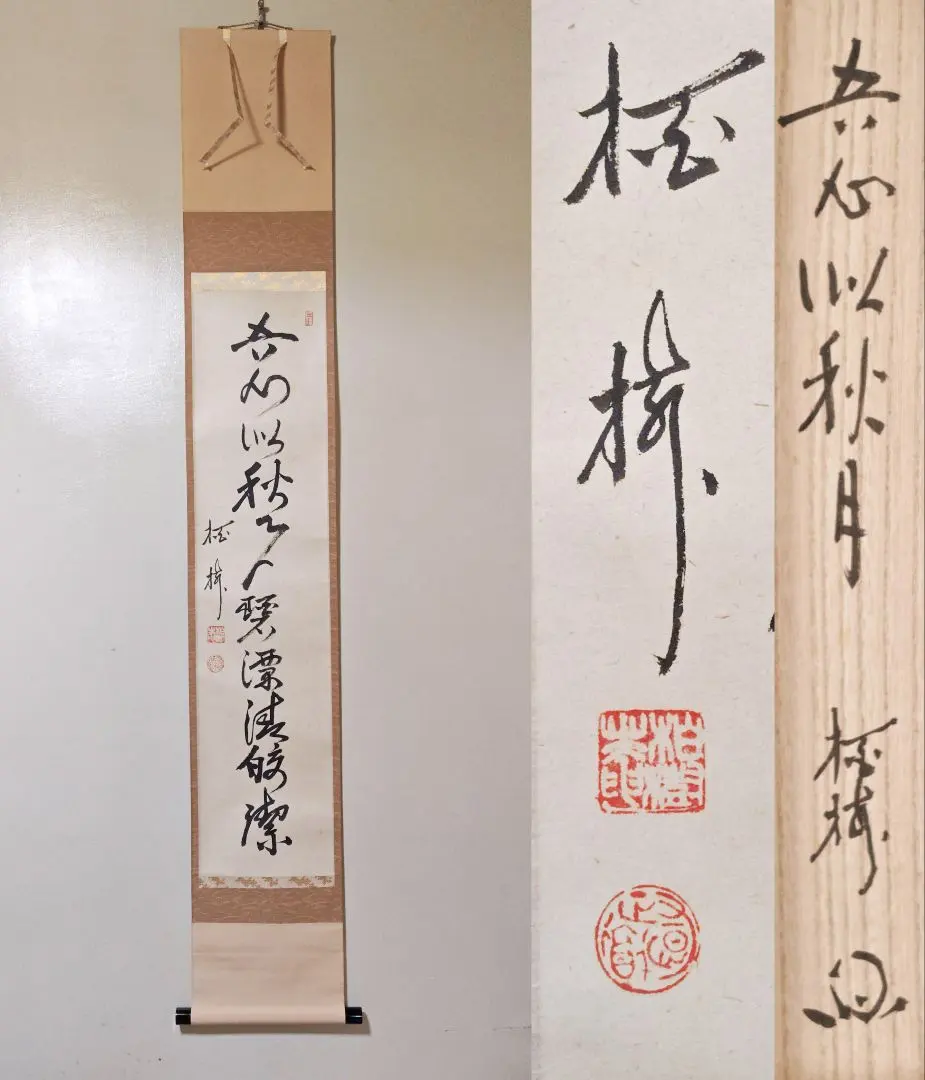 吾心似秋月碧潭清皎潔
栢樹
栢樹
吾心似秋月 栢樹